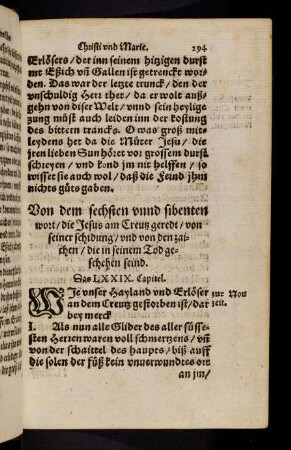 Christi vnd Marie. 294
Erlösers / der inn seinem hitzigen durst
mit Eßich vñ Gallen ist getrenckt wor-
den. Das war der letzte trunck / den der
vnschuldig Herr thet / da er wolt auß-
gehn von diser Welt / vnnd sein heylige
zung müst auch leiden inn der kostung
des bittern trancks. O was groß mit-
leydens het da die Müter Jesu / die
jren lieben Sun höret vor grossem durst
schreyen / vnd kond jm nit helffen / so
wisset sie auch wol / daß die Feind jhm
nichts güts gaben.
Von dem sechsten vnnd sibenten
wort / die Jesus am Creutz geredt / von
seiner schidung / vnd von den zai-
chen / die in seinem Tod ge-
schehen seind.
Das LXXIX. Capitel.
WJe vnser Hayland vnd Erlöser
an dem Creutz gestorben ist / dar
bey merck
zur Non
zeit.
I. Als nun alle Glider des aller süsse-
sten Herren waren voll schmertzens / vñ
von der schaittel des haupts / biß auff
die solen der füß kein vnuerwundtes ort
an jm /